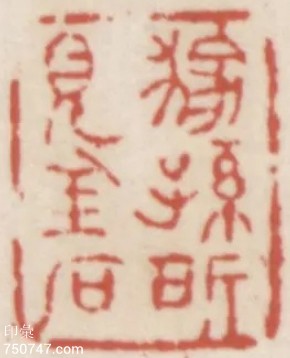 稼孫所
見金石
印彙
750747.com